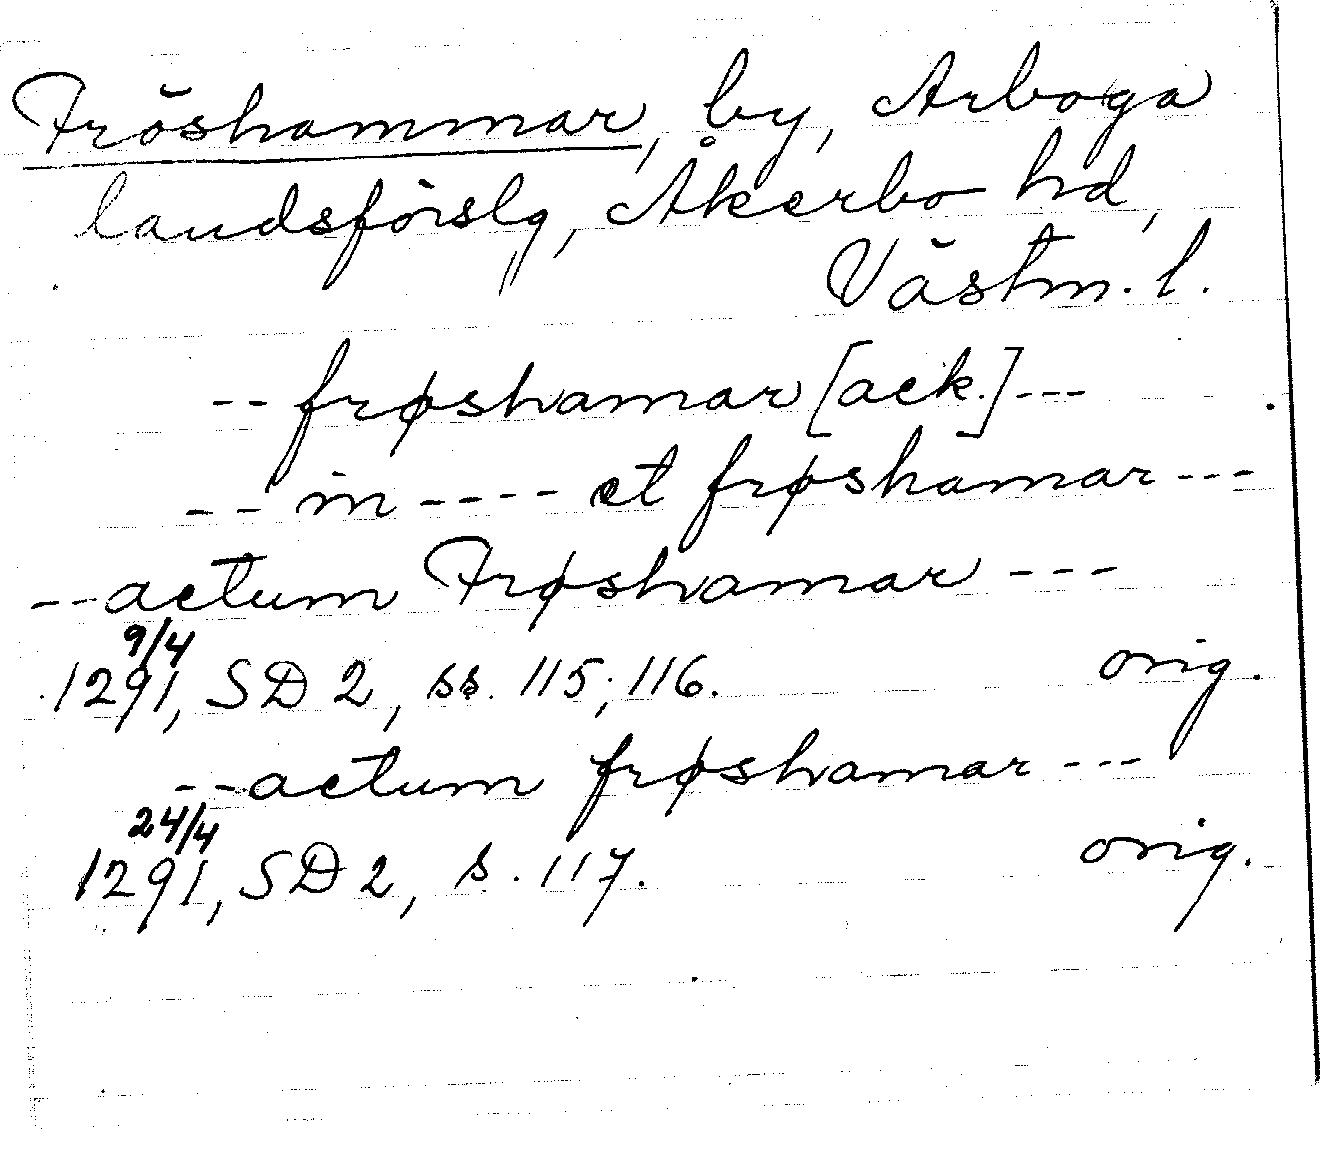 Fröshammar, by, Arboga
landsförslg, Åkerbo hd,
Västm. l.
-- frøshamar [ack.] ---
-- in ---- et frøshamar ---
-- actum Frøshamar ---
9/4
1291, SD 2, ss. 115, 116. orig.
-- actum frøshamar ---
24/4
1291, SD 2, s. 117. orig.